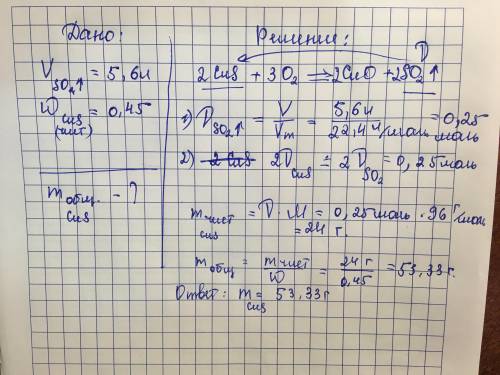 Дано:
V SO₂↑ = 5,6л
W CuS (чист) = 0,45
m общ. CuS - ?
Решение:
ν
2CuS + 3O₂ ⟹ 2CuO + 2SO₂↑
1) ν SO₂↑ = V/Vm = 5,6л / 22,4 л/моль = 0,25 моль
2) 2CuS 2ν CuS = 2ν SO₂ = 0,25моль
m чист CuS = ν · M = 0,25моль · 96 г/моль
= 24 г.
m общ = m чист / W = 24 г / 0,45 = 53,33г.
Ответ: m CuS = 53,33г